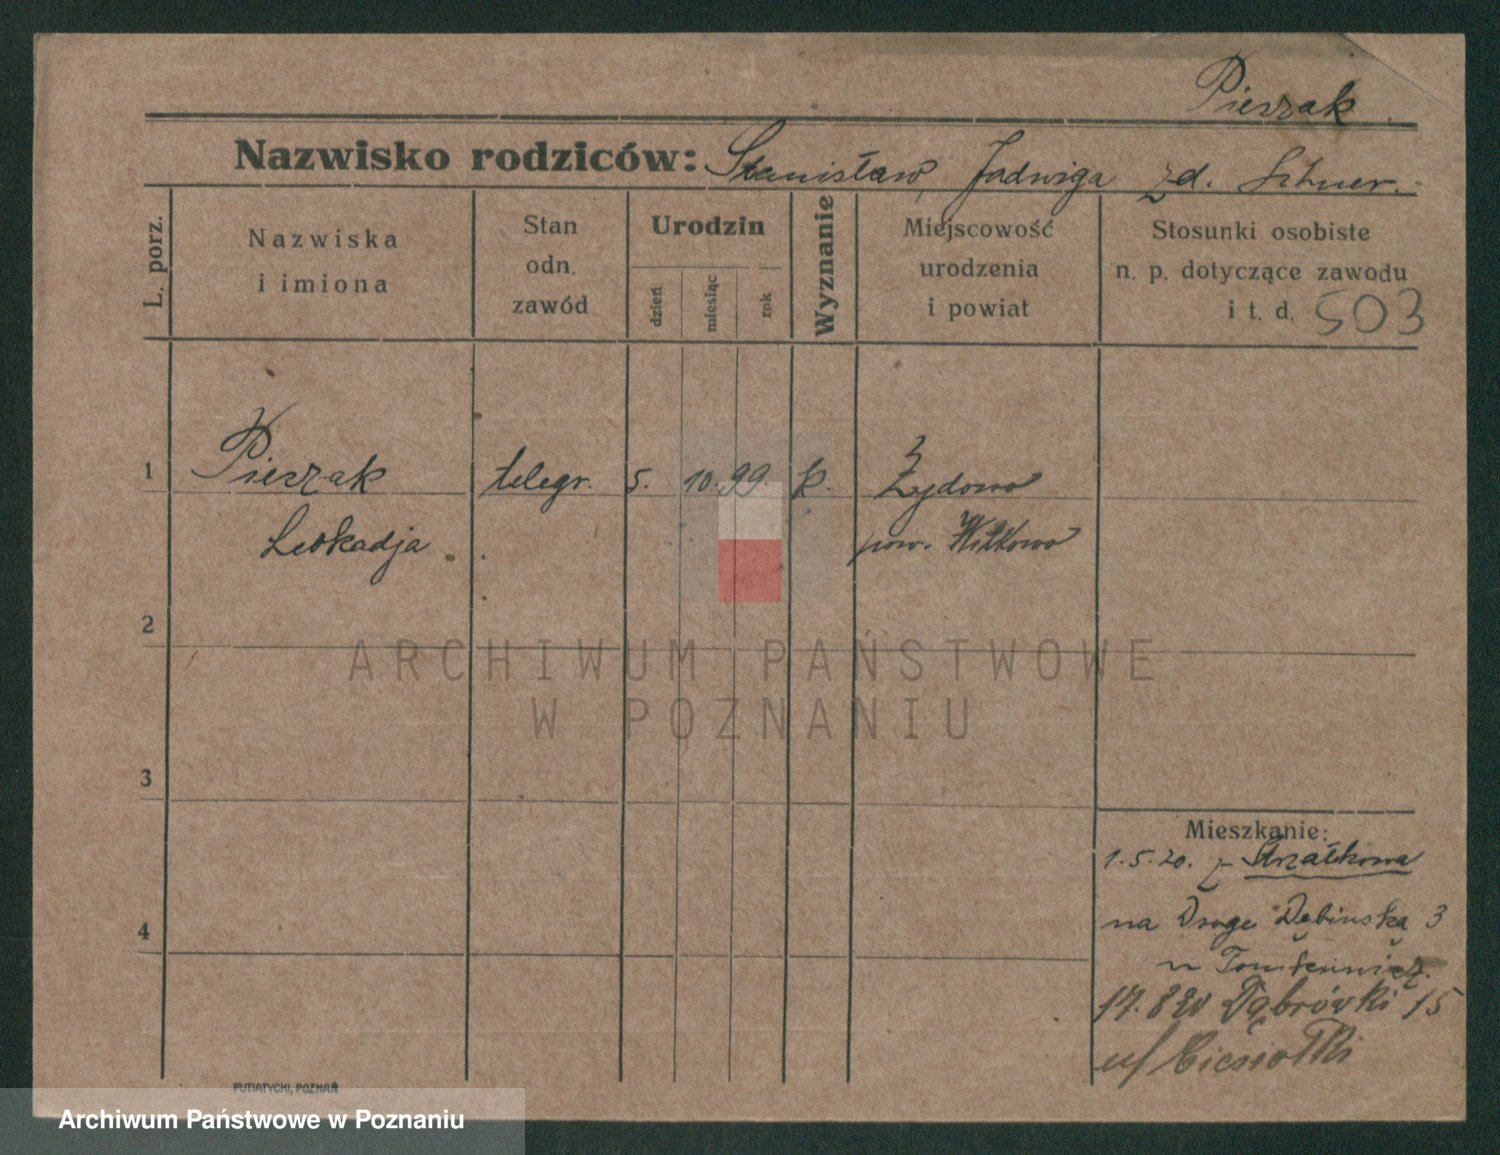 Pieszak
Nazwisko rodziców: Stanisław, Jadwiga zd.
L. porz.
Nazwiska
i imiona
Stan
odn.
zawód
Urodzin
dzień
miesiąc
rok
Wyznanie
Miejscowość
urodzenia
i powiat
Stosunki osobiste
n. p. dotyczące zawodu
i t. d. 503
1 Pieszak telegr. 5. 10. 99 k. Żydowo
Leokadja pow. Witkowo
2
ARCHIWUM PAŃSTWOWE
W POZNANIU
3
Mieszkanie:
1.5.20. z Strzałkowa
4
na Drogę Dębińską 3
u
17.8 20 Dąbrówki 15
u/ Ciesiołki
PUTIATYCKI, POZNAŃ
Archiwum Państwowe w Poznaniu